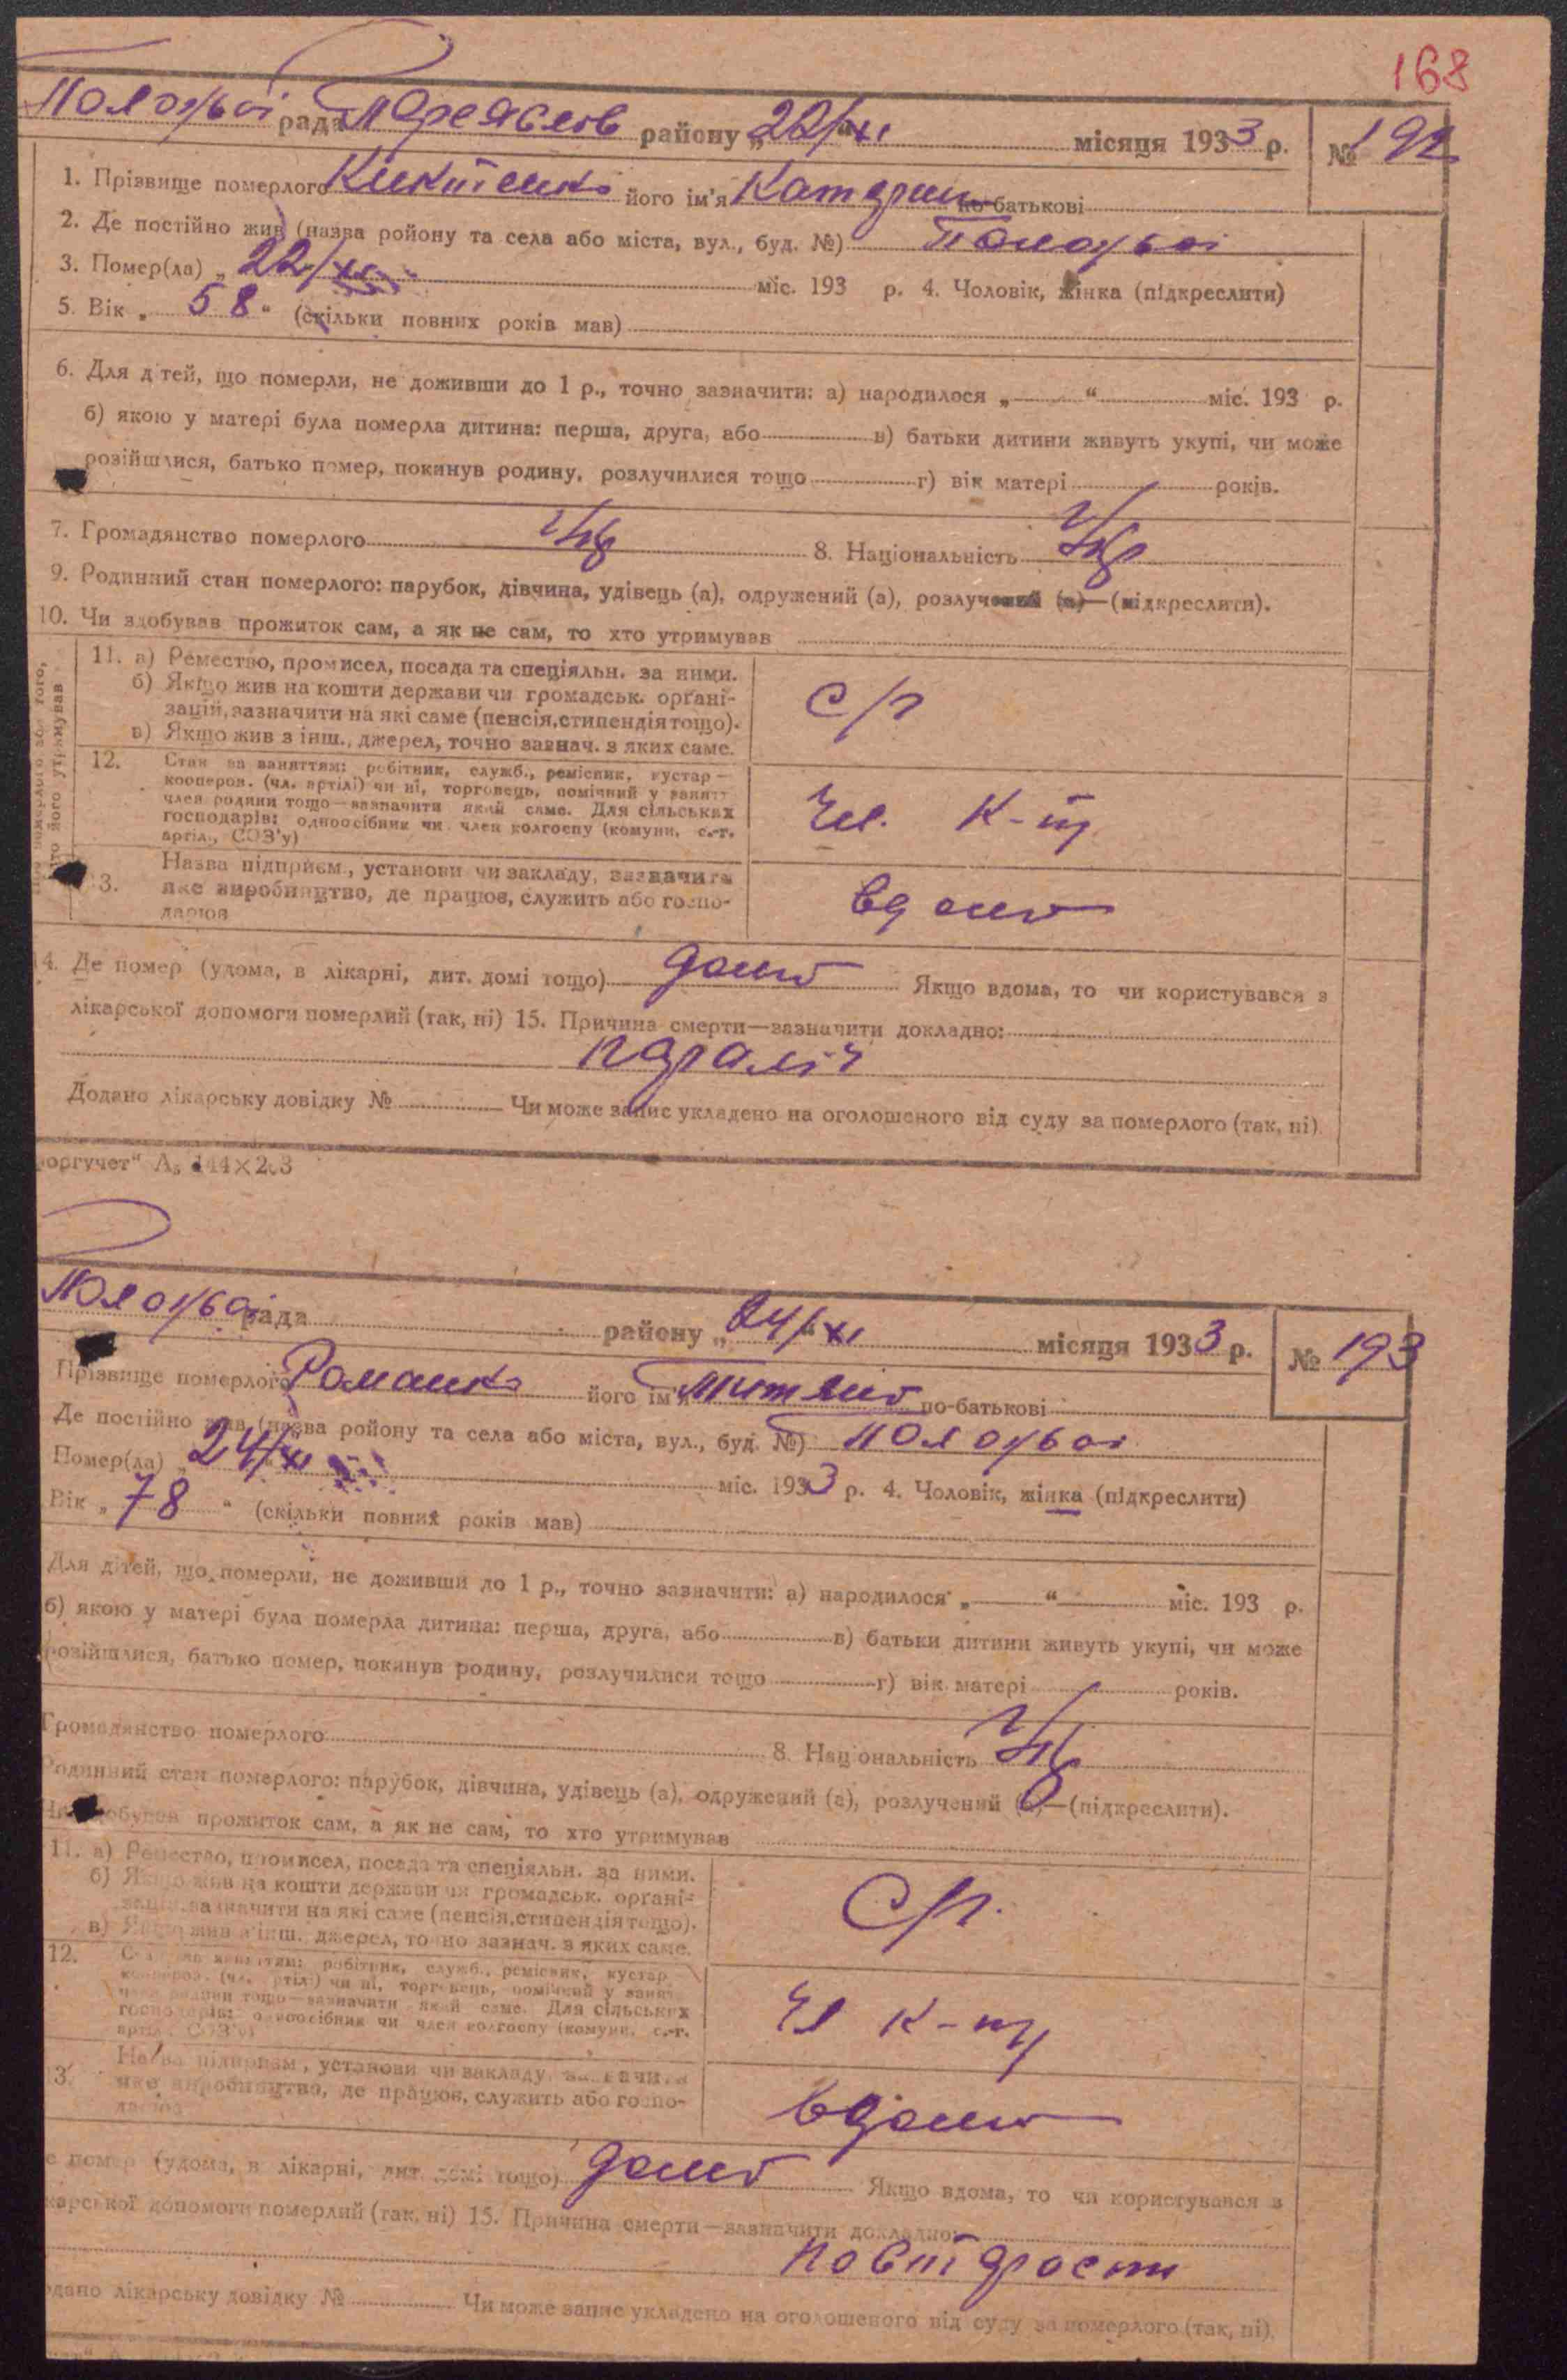 168
рада Переяслов району „22/XI“ місяця 1933 р. № 192
1. Прізвище померлого Никитенко його ім'я Катерин по-батькові
2. Де постійно жив (назва ройону та села або міста, вул., буд. №)
3. Помер(ла) „22/XI міс. 193 р. 4. Чоловік, жінка (підкреслити)
5. Вік „ 58 “ (скільки повних років мав)
6. Для дітей, що померли, не доживши до 1 р., точно зазначити: а) народилося „ “ міс. 193 р.
б) якою у матері була померла дитина: перша, друга, або в) батьки дитини живуть укупі, чи може
розійшлися, батько помер, покинув родину, розлучилися тощо г) вік матері років.
7. Громадянство померлого Укр 8. Національність Укр
9. Родинний стан померлого: парубок, дівчина, удівець (а), одружений (а), розлучений (а)—(підкреслити).
10. Чи здобував прожиток сам, а як не сам, то хто утримував
11. а) Ремество, промисел, посада та спеціяльн. за ними.
б) Якщо жив на кошти держави чи громадськ. орґані-
зацій, зазначити на які саме (пенсія, стипендія тощо).
в) Якщо жив з інш., джерел, точно зазнач. з яких саме.
с/г
12. Стан за заняттям: робітник, служб., ремісник, кустар—
кооперов. (чл. артілі) чи ні, торговець, помічний у занятт
член родини тощо—зазначити який саме. Для сільських
господарів: одноосібник чи член колгоспу (комуни, с.-г.
артіл., СОЗ'у)
Чл. к-ту
13. Назва підприєм., установи чи закладу, зазначити
яке виробництво, де працюв, служить або госпо-
дарюв
вдома
14. Де помер (удома, в лікарні, дит. домі тощо) дома Якщо вдома, то чи користувався з
лікарської допомоги померлий (так, ні) 15. Причина смерти—зазначити докладно:
параліч
Додано лікарську довідку № Чи може запис укладено на оголошеного від суду за померлого (так, ні)
рада району „24/XI“ місяця 1933 р. № 193
Прізвище померлого Романко його ім'я по-батькові
Де постійно жив (назва ройону та села або міста, вул., буд. №)
Помер(ла) „24/XI міс. 1933 р. 4. Чоловік, жінка (підкреслити)
Вік „ 78 “ (скільки повних років мав)
Для дітей, що померли, не доживши до 1 р., точно зазначити: а) народилося „ “ міс. 193 р.
б) якою у матері була померла дитина: перша, друга, або в) батьки дитини живуть укупі, чи може
розійшлися, батько помер, покинув родину, розлучилися тощо г) вік матері років.
Громадянство померлого 8. Національність Укр
Родинний стан померлого: парубок, дівчина, удівець (а), одружений (а), розлучений (а)—(підкреслити).
Чи здобував прожиток сам, а як не сам, то хто утримував
11. а) Ремество, промисел, посада та спеціяльн. за ними.
б) Якщо жив на кошти держави чи громадськ. орґані-
зацій, зазначити на які саме (пенсія, стипендія тощо).
в) Якщо жив з інш., джерел, точно зазнач. з яких саме.
С/г.
12. Стан за заняттям: робітник, служб., ремісник, кустар
кооперов. (чл. артілі) чи ні, торговець, помічний у занятт
член родини тощо—зазначити який саме. Для сільських
господарів: одноосібник чи член колгоспу (комуни, с.-г.
артіл., СОЗ'у)
Чл к-ту
3. Назва підприєм., установи чи закладу, зазначити
яке виробництво, де працюв, служить або госпо-
дарюв
вдома
помер (удома, в лікарні, дит. домі тощо) дома Якщо вдома, то чи користувався з
карської допомоги померлий (так, ні) 15. Причина смерти—зазначити докладно:
Додано лікарську довідку № Чи може запис укладено на оголошеного від суду за померлого (так, ні).